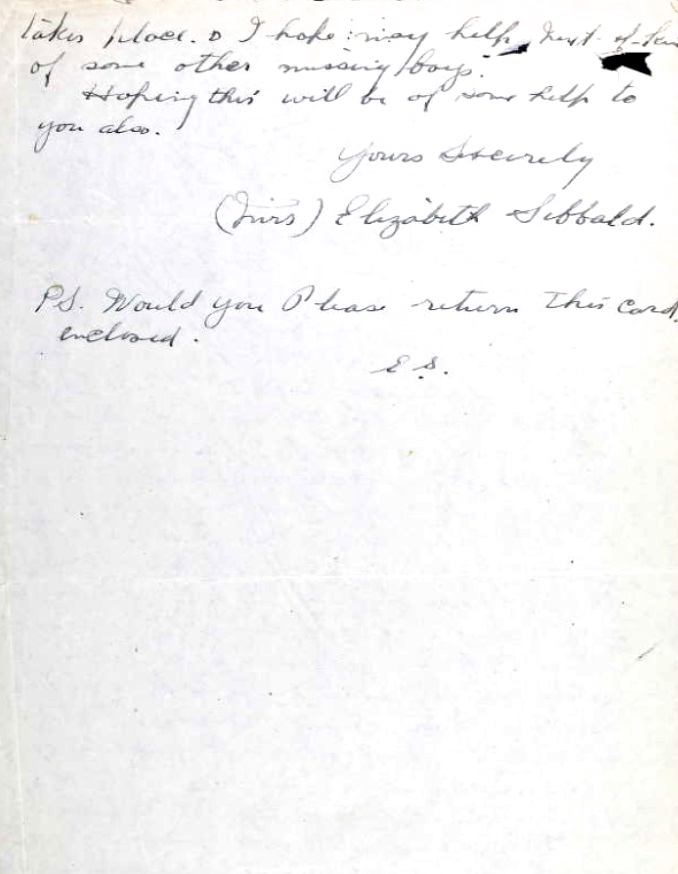 takes place. & I hope may help next-of-kin
of some other missing boys.
Hoping this will be of some help to
you also.
Yours Sincerely
(Mrs) Elizabeth Sibbald.
PS. Would you Please return this card.
enclosed.
E S.